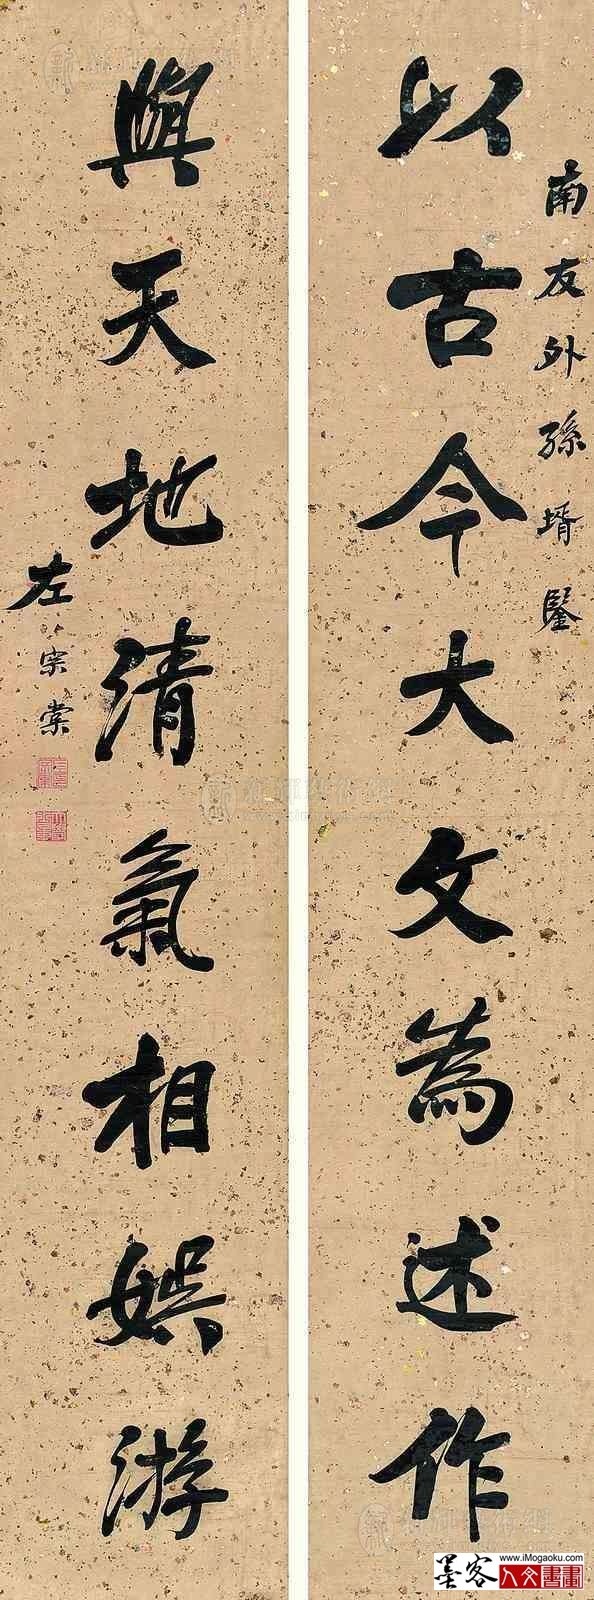 南友外孫壻鑒
以古今大文為述作
與天地清氣相娛游
左宗棠
墨客
www.iMogaoku.com
人文書畫